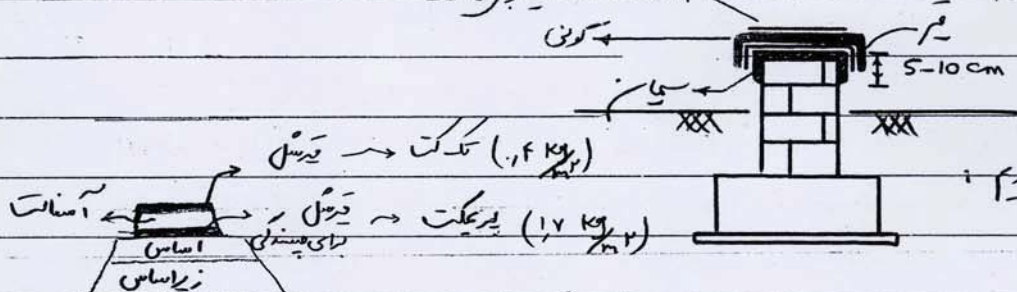 گونی
قیر
5-10 cm
سیمان
قیرشل → تک کت (۰٫۴ kg/m۲)
آسفالت
قیرشل → پریمکت (۱٫۷ kg/m۲)
برای چسبندگی
اساس
زیراساس